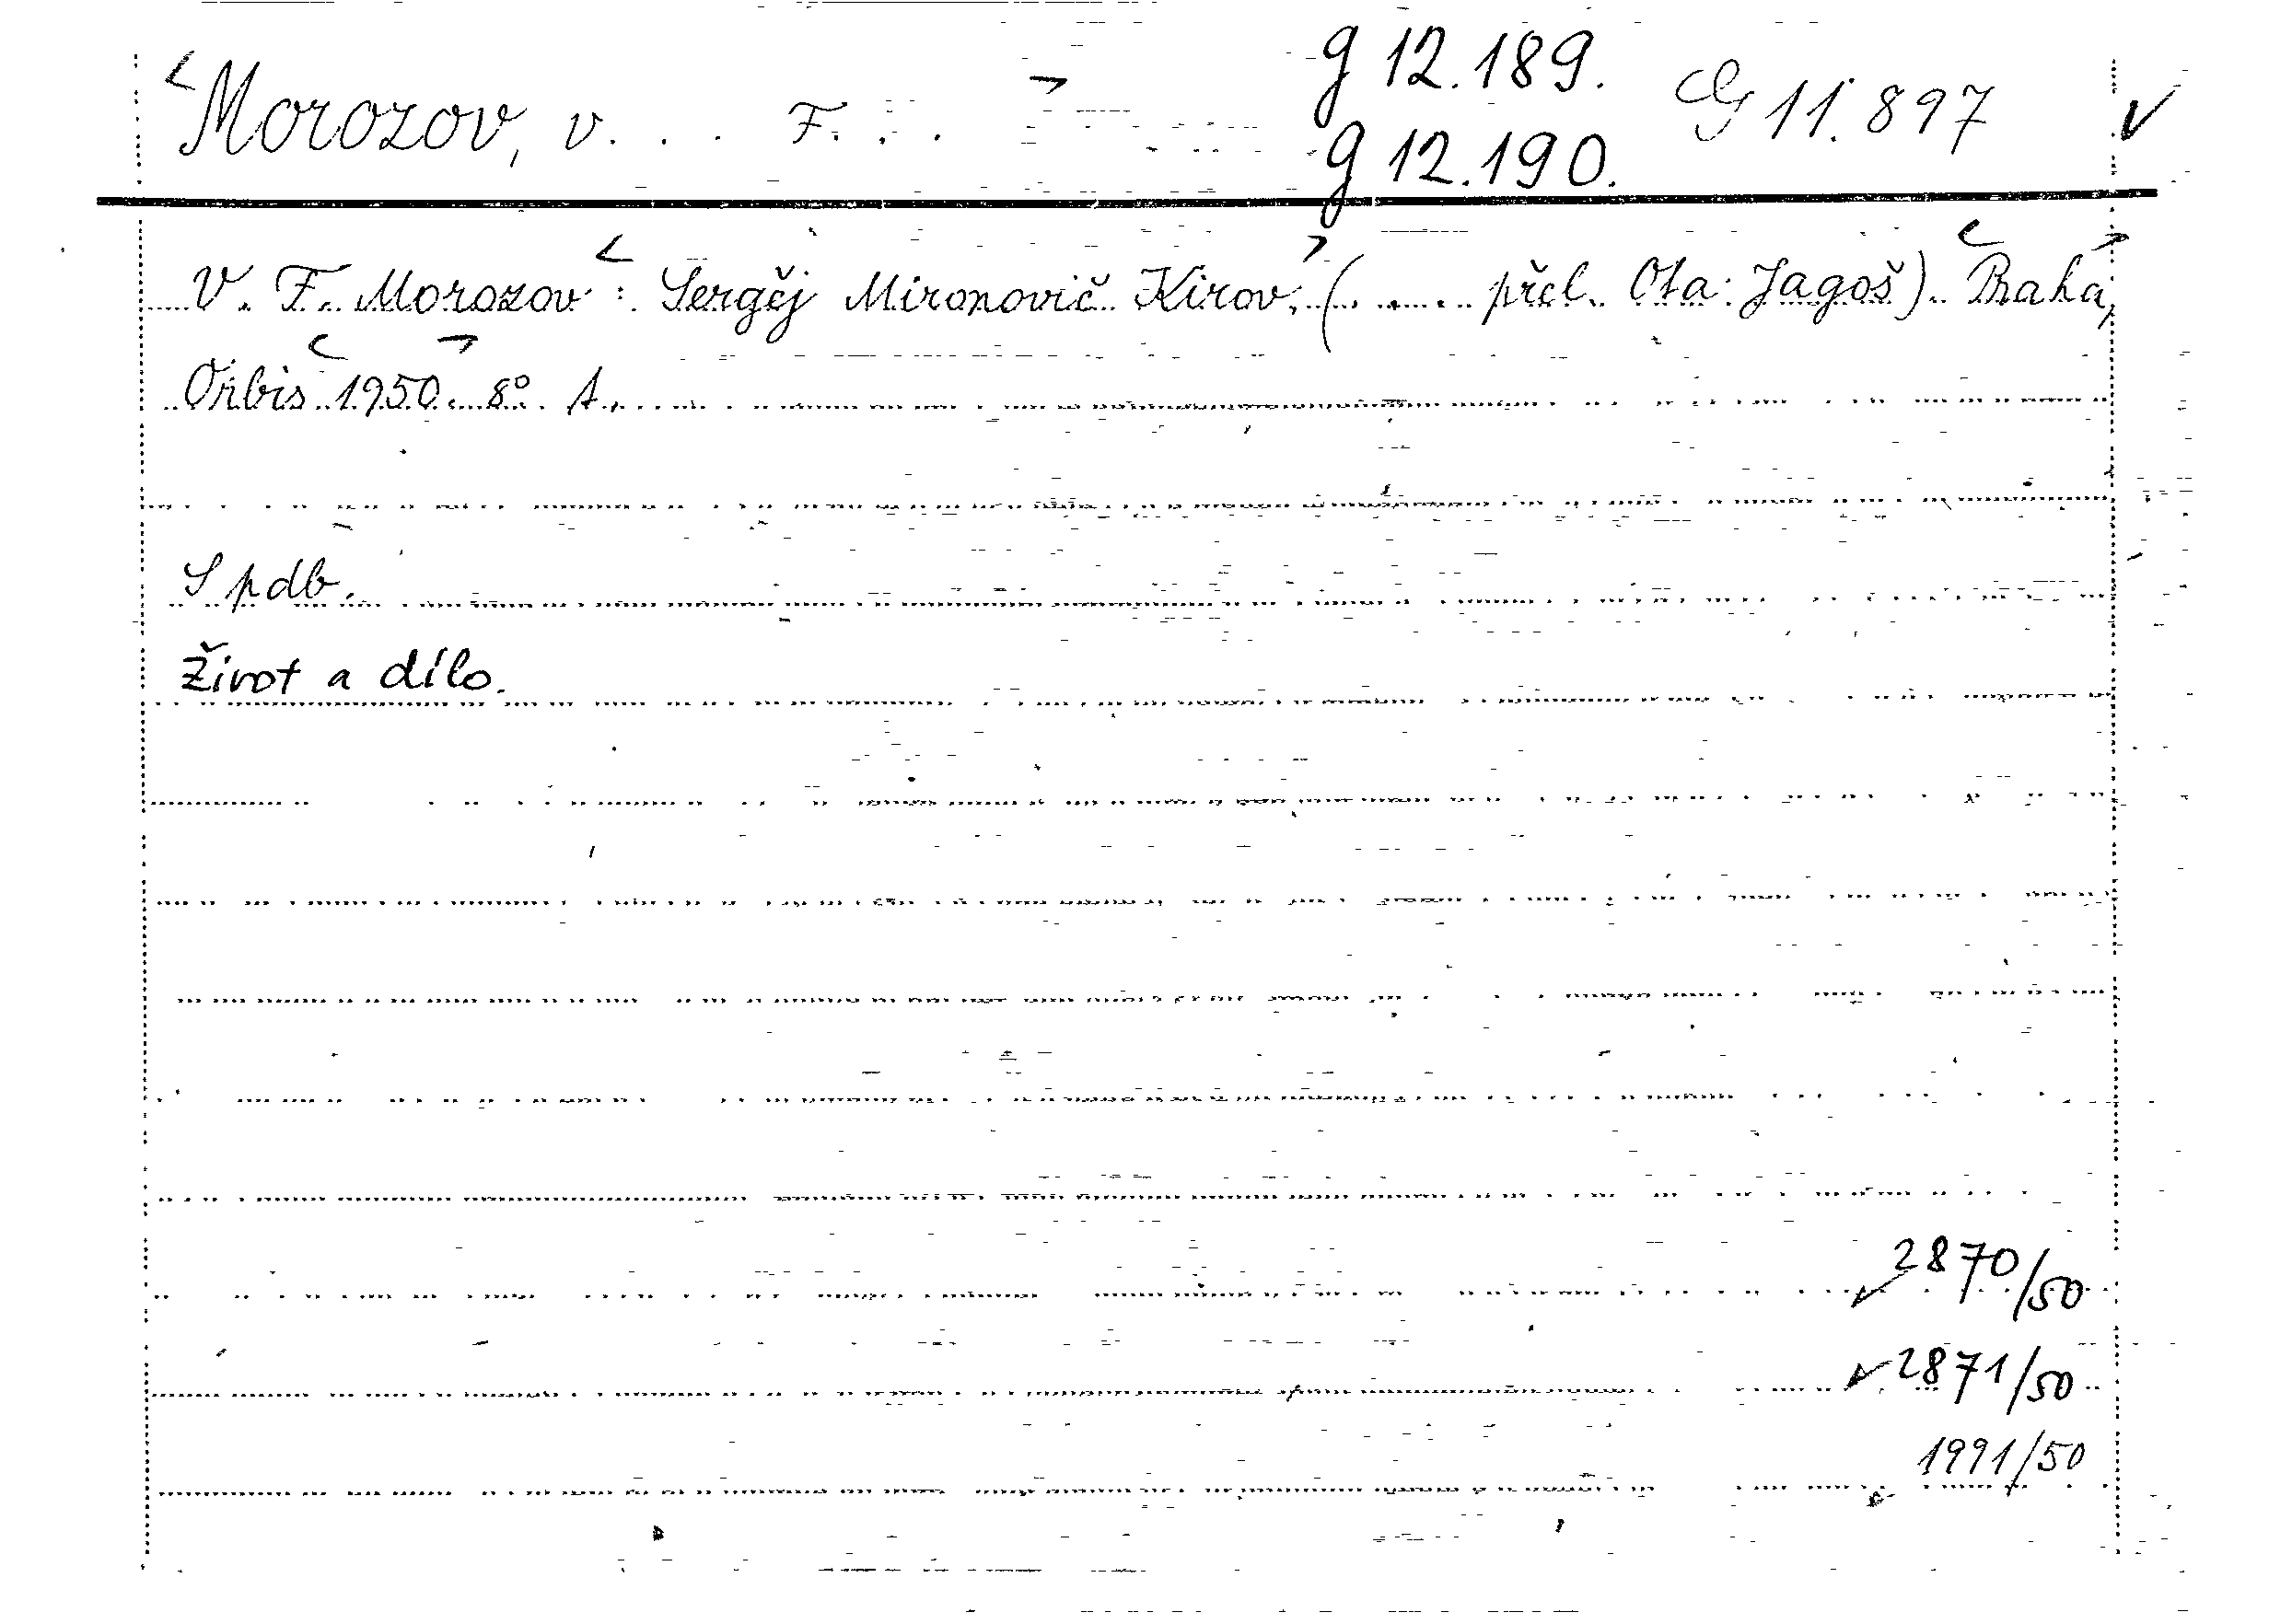 g 12.189.
Morozov, V... F... G 11.897
g 12.190.
V. F. Morozov: Sergěj Mironovič Kirov, (.... přel. Ota Jagoš). Praha,
Orbis 1950. 8°. A.
S pdb.
Život a dílo.
2870/50
2871/50
1991/50